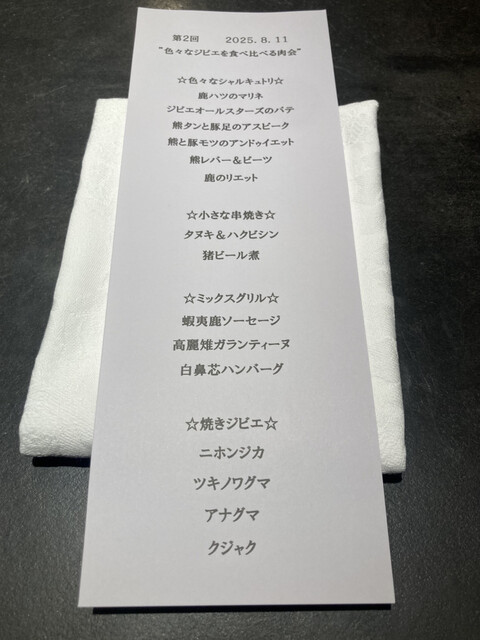 第2回 2025.8.11
"色々なジビエを食べ比べる肉会"
☆色々なシャルキュトリ☆
鹿ハツのマリネ
ジビエオールスターズのパテ
熊タンと豚足のアスピーク
熊と豚モツのアンドゥイエット
熊レバー＆ビーツ
鹿のリエット
☆小さな串焼き☆
タヌキ＆ハクビシン
猪ビール煮
☆ミックスグリル☆
蝦夷鹿ソーセージ
高麗雉ガランティーヌ
白鼻芯ハンバーグ
☆焼きジビエ☆
ニホンジカ
ツキノワグマ
アナグマ
クジャク